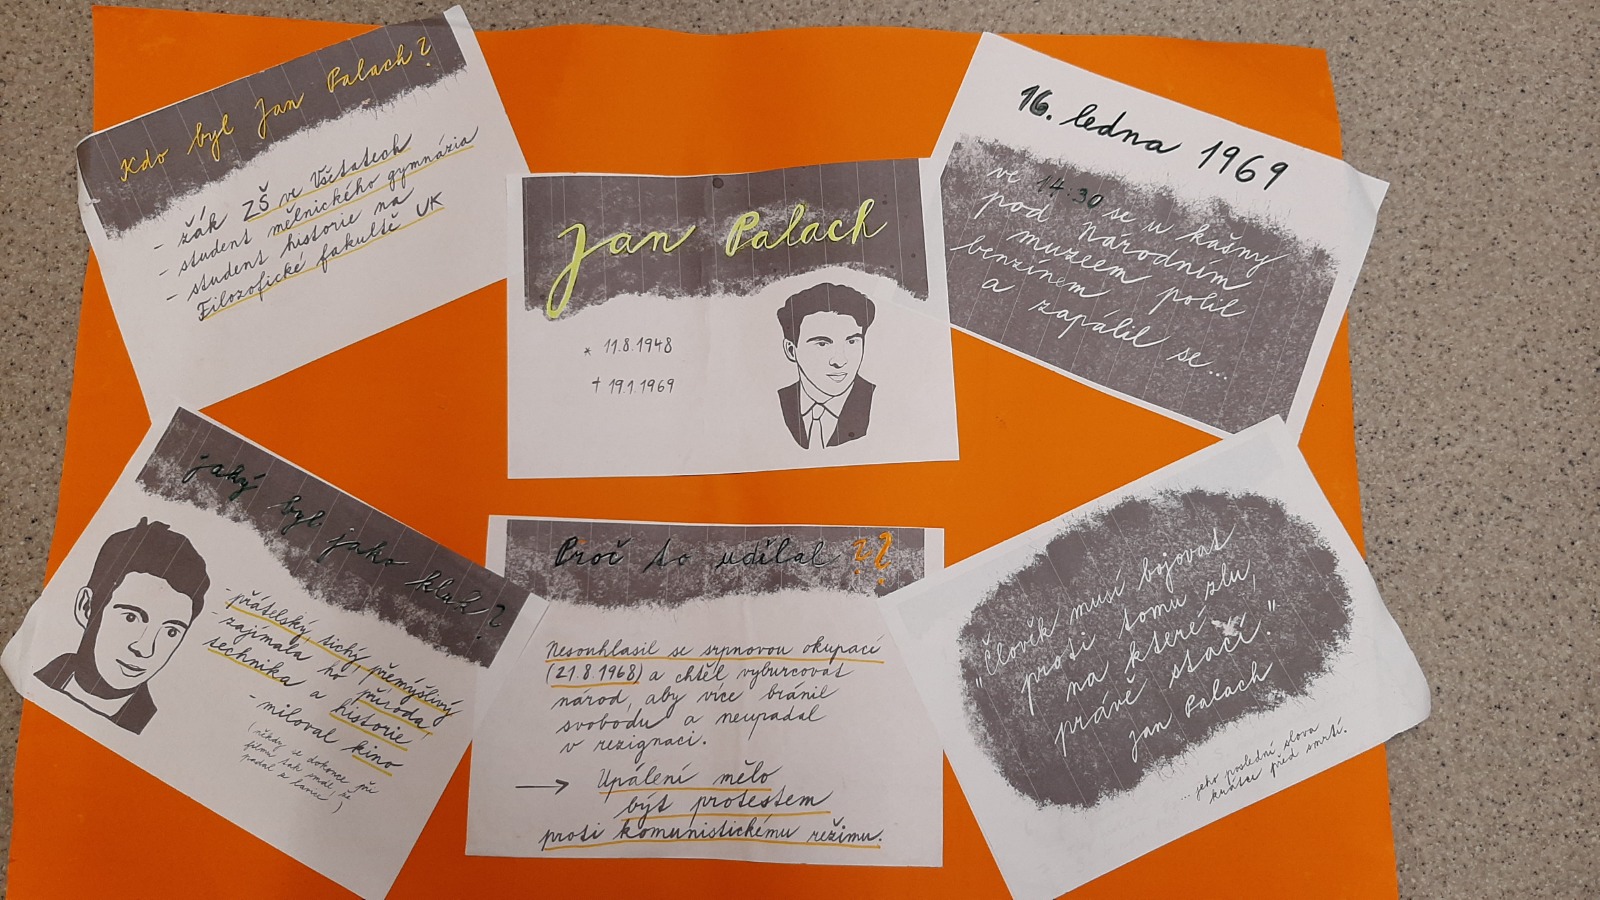 Kdo byl Jan Palach?
- žák ZŠ ve Všetatech
- student mělnického gymnázia
- student historie na
Filozofické fakultě UK
Jan Palach
* 11.8.1948
† 19.1.1969
16. ledna 1969
ve 14:30 se u kašny
pod Národním
muzeem polil
benzínem
a zapálil se...
jaký byl jako kluk?
- přátelský, tichý, přemýšlivý
- zajímala ho příroda,
technika a historie
- miloval kino
(někdy se dokonce při
filmu tak smál, že
padal z lavice)
Proč to udělal ??
Nesouhlasil se srpnovou okupací
(21.8.1968) a chtěl vyburcovat
národ, aby více bránil
svobodu a neupadal
v rezignaci.
→ Upálení mělo
být protestem
proti komunistickému režimu.
"Člověk musí bojovat
proti tomu zlu,
na které
právě stačí."
Jan Palach
... jeho poslední slova
krátce před smrtí.